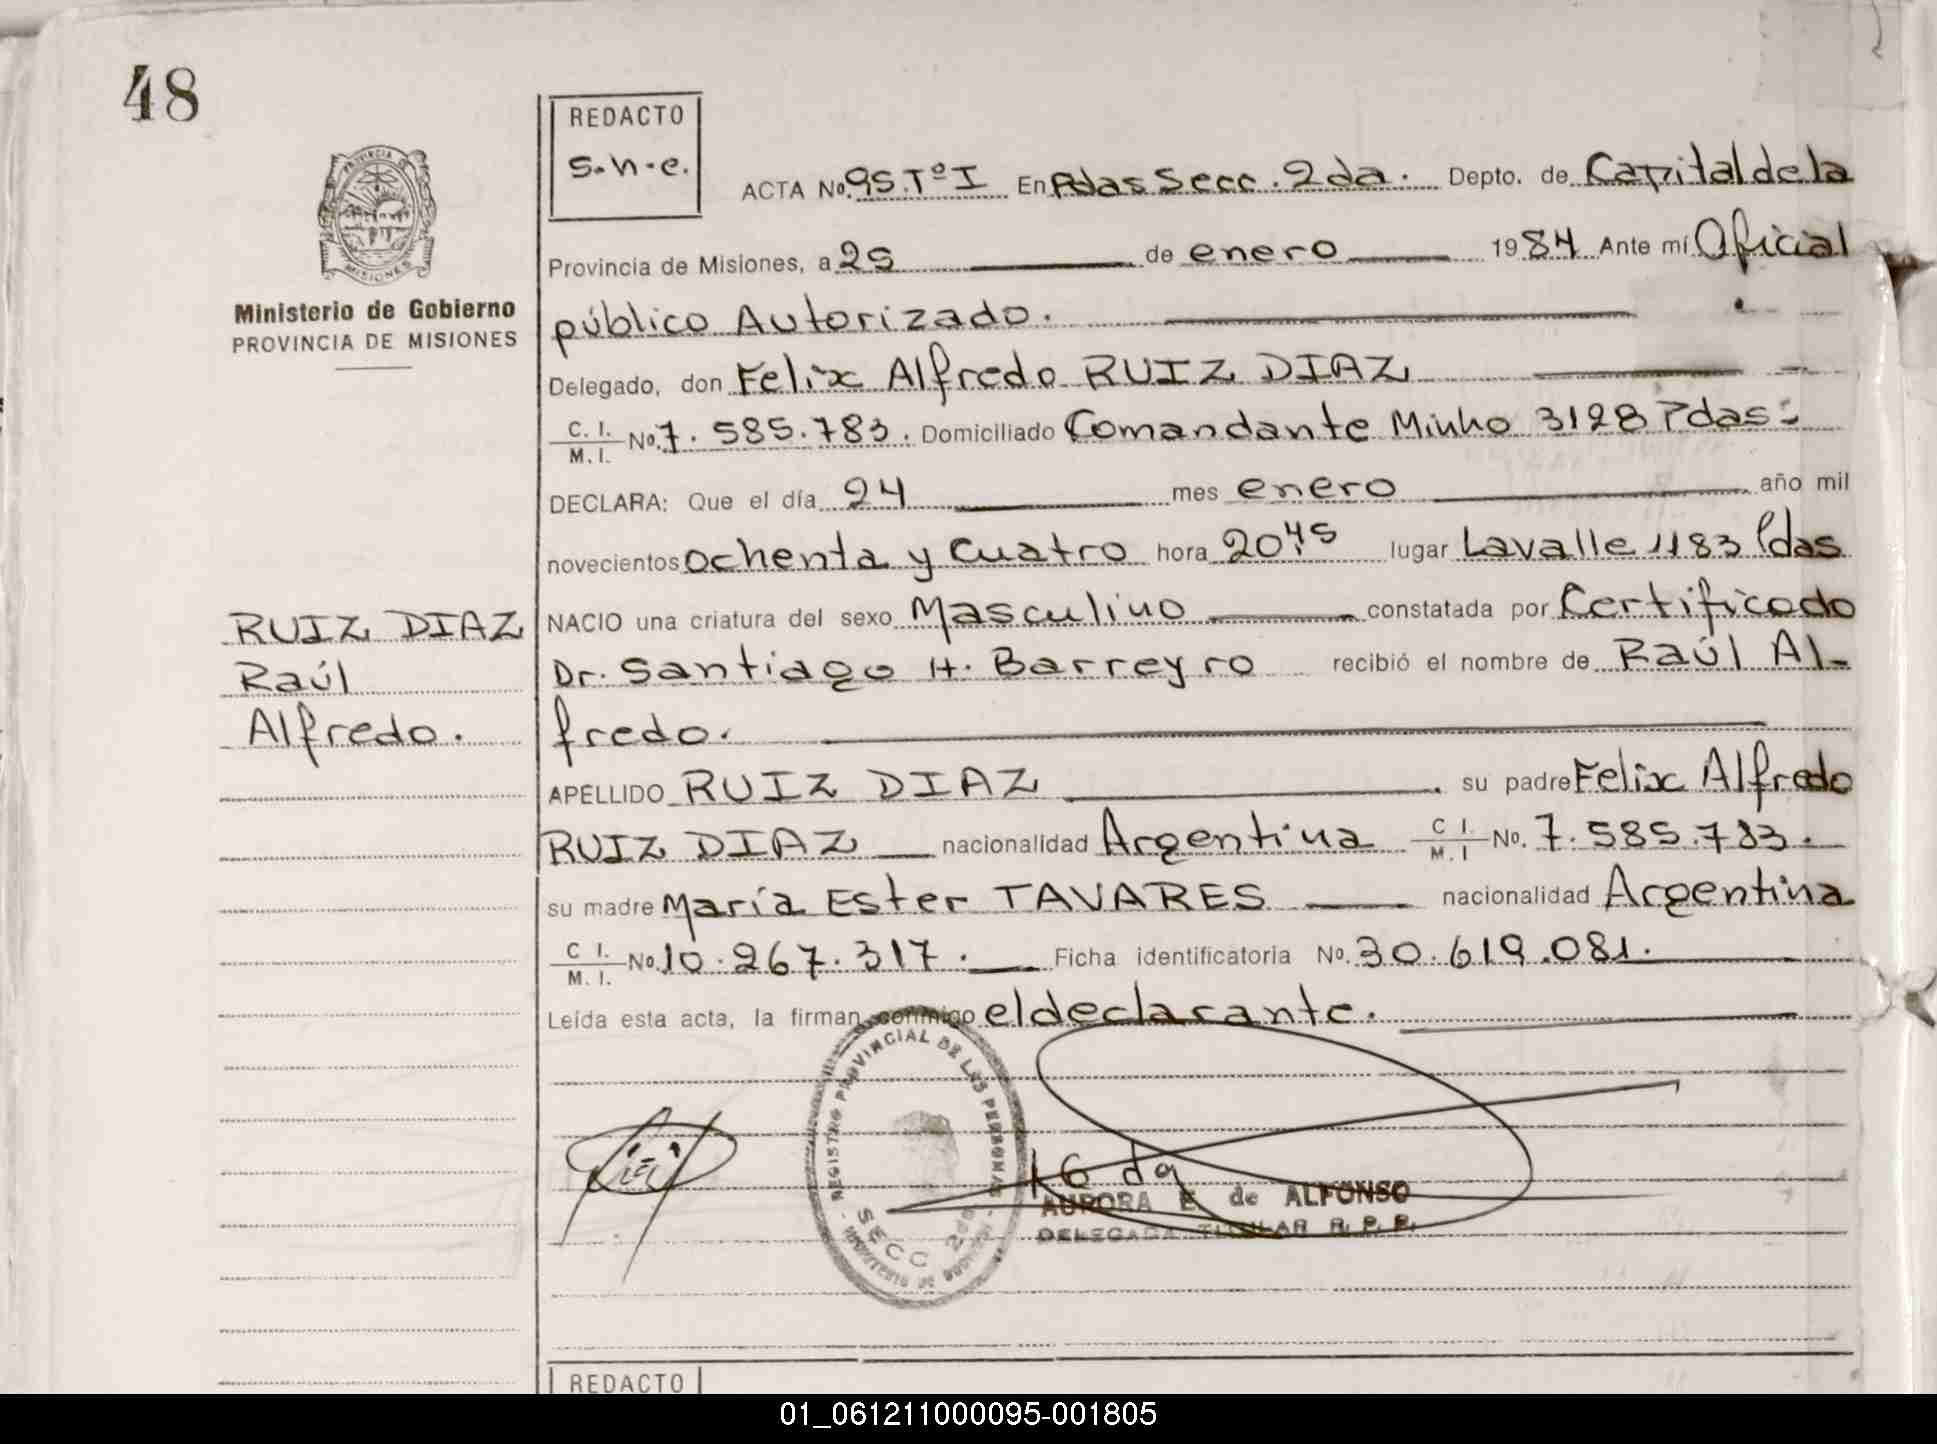 48
REDACTO
s.h.e.
PROVINCIA DE
MISIONES
Ministerio de Gobierno
PROVINCIA DE MISIONES
ACTA No. 95.Tº I En Pdas Secc. 2da. Depto. de Capital de la
Provincia de Misiones, a 25 de enero 1984 Ante mí Oficial
público Autorizado.
Delegado, don Felix Alfredo RUIZ DIAZ
C. I. / M. I. No. 7.585.783. Domiciliado Comandante Minho 3128 Pdas
DECLARA: Que el día 24 mes enero año mil
novecientos ochenta y cuatro hora 20.45 lugar Lavalle 1183 Pdas
RUIZ DIAZ
Raúl
Alfredo.
NACIO una criatura del sexo Masculino constatada por Certificado
Dr. Santiago H. Barreyro recibió el nombre de Raúl Al-
fredo.
APELLIDO RUIZ DIAZ su padre Felix Alfredo
RUIZ DIAZ nacionalidad Argentina C I. / M. I No. 7.585.783.
su madre María Ester TAVARES nacionalidad Argentina
C I. / M. I. No. 10.267.317. Ficha identificatoria No. 30.619.081.
Leída esta acta, la firman conmigo el declarante.
REGISTRO PROVINCIAL DE LAS PERSONAS
SECC 2da
AURORA E. de ALFONSO
DELEGADA TITULAR R. P. P.
REDACTO
01_061211000095-001805